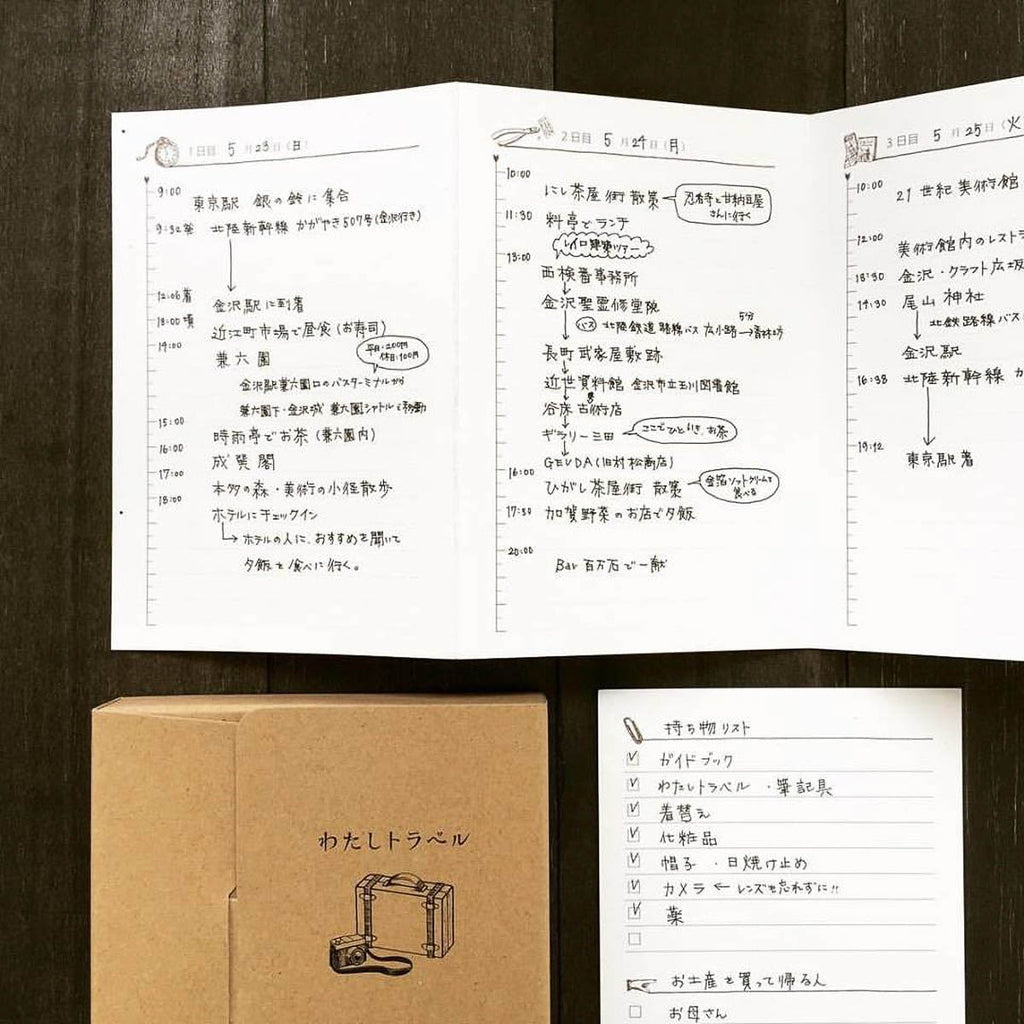 1日目 5月23日(日)
9:00 東京駅 銀の鈴に集合
9:32発 北陸新幹線 かがやき507号(金沢行き)
12:06着 金沢駅に到着
13:00頃 近江町市場で昼食(お寿司)
14:00 兼六園
平日・200円
休日・100円
金沢駅兼六園口のバスターミナルから
兼六園下・金沢城 兼六園シャトルで移動
15:00 時雨亭でお茶(兼六園内)
16:00 成巽閣
17:00 本多の森・美術の小径散歩
18:00 ホテルにチェックイン
ホテルの人に、おすすめを聞いて
夕飯を食べに行く。
2日目 5月24日(月)
10:00 にし茶屋街散策
忍者寺と甘納豆屋
さんに行く
11:30 料亭でランチ
レイロ建築ツアー
13:00 西検番事務所
金沢聖霊修道院
バス 北陸鉄道路線バス 広小路→香林坊
5分
長町武家屋敷跡
近世資料館 金沢市立玉川図書館
谷庄古術店
ギャラリー三田
ここでひといき、お茶
GEUDA(旧村松商店)
16:00 ひがし茶屋街 散策
金箔ソフトクリームを
食べる
17:30 加賀野菜のお店で夕飯
20:00 Bar 百万石で一献
3日目 5月25日(火
10:00 21世紀美術館
12:00 美術館内のレストラ
13:30 金沢・クラフト広坂
14:30 尾山神社
北鉄路線バス
金沢駅
16:38 北陸新幹線 か
19:12 東京駅着
わたしトラベル
持ち物リスト
ガイドブック
わたしトラベル ・筆記具
着替え
化粧品
帽子 ・日焼け止め
カメラ ← レンズを忘れずに!!
薬
お土産を買って帰る人
お母さん